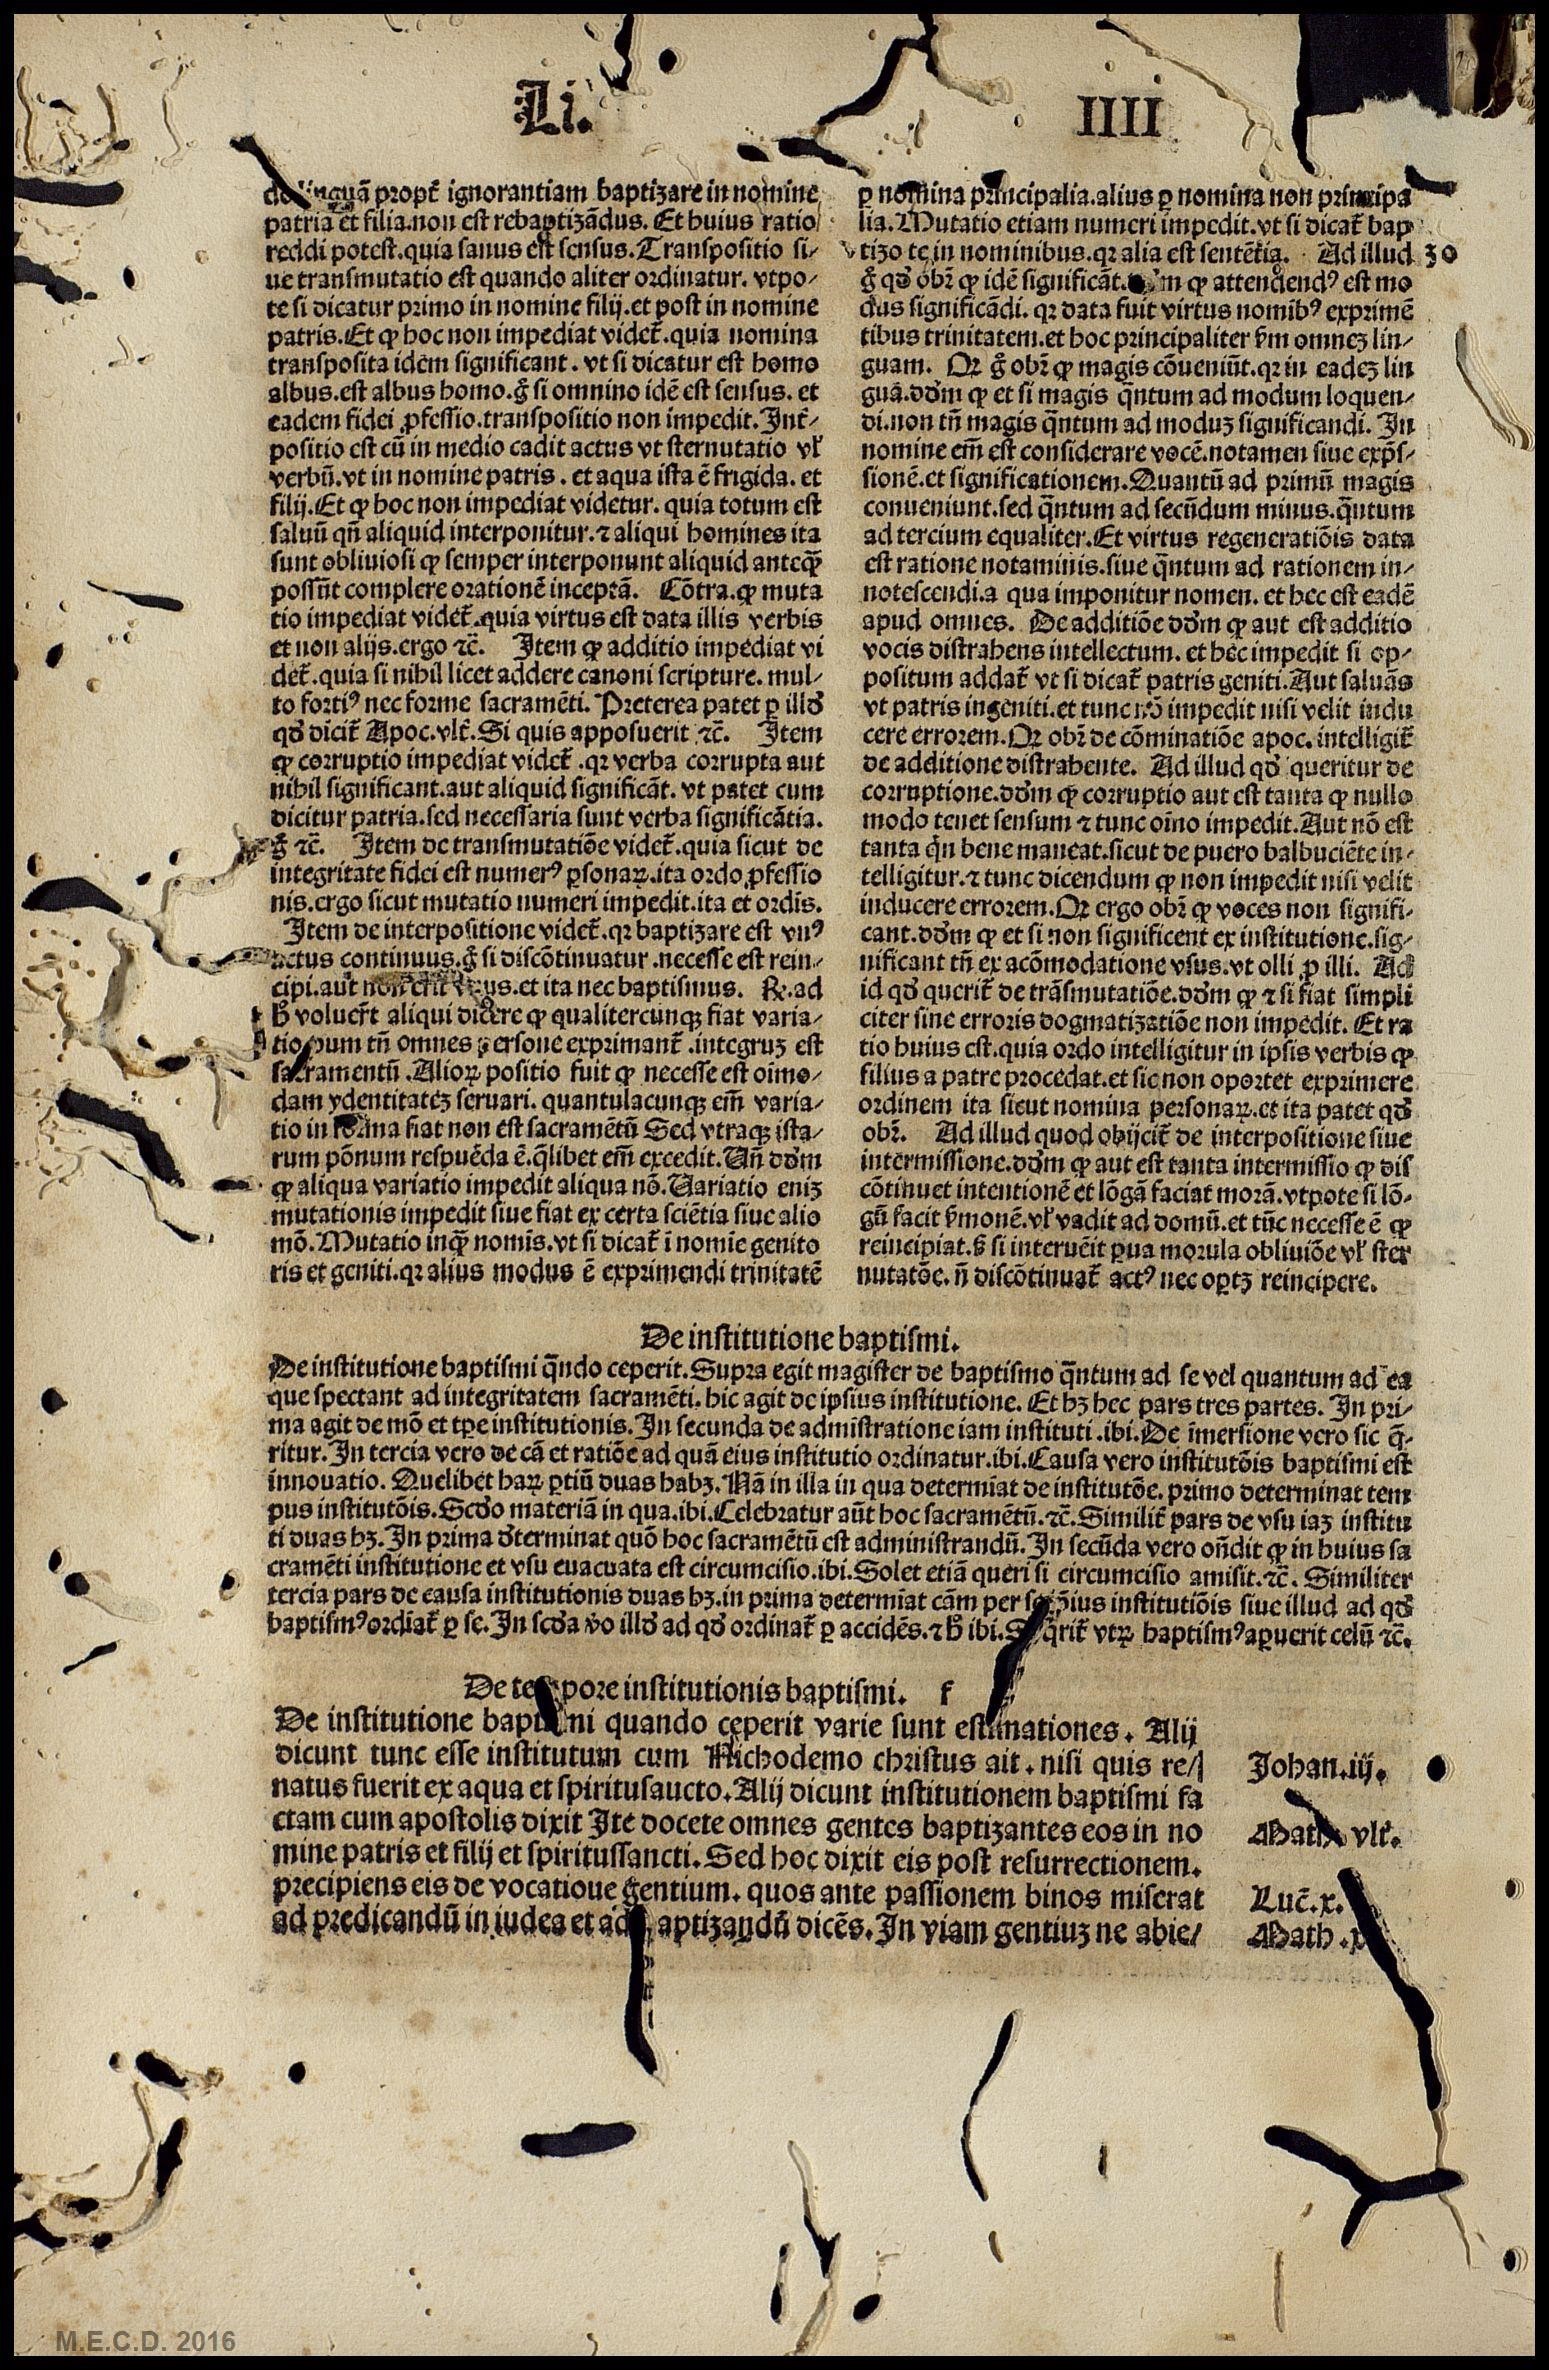 Li.
IIII
linguã propt̃ ignorantiam baptizare in nomine
patria et filia.non est rebaptizãdus. Et huius ratio
reddi potest.quia sanus est sensus.Transpositio si-
ue transmutatio est quando aliter ordinatur. vtpo-
te si dicatur primo in nomine filij.et post in nomine
patris.Et ꝙ hoc non impediat videt̃.quia nomina
transposita idem significant. vt si dicatur est homo
albus.est albus homo.g̃ si omnino idẽ est sensus. et
eadem fidei ꝓfessio.transpositio non impedit. Int̃-
positio est cũ in medio cadit actus vt sternutatio vl̃
verbũ.vt in nomine patris. et aqua ista ẽ frigida. et
filij.Et ꝙ hoc non impediat videtur. quia totum est
saluũ qñ aliquid interponitur.⁊ aliqui homines ita
sunt obliuiosi ꝙ semper interponunt aliquid anteq̃
possũt complere orationẽ inceptã. Cõtra.ꝙ muta
tio impediat videt̃.quia virtus est data illis verbis
et non alijs.ergo ⁊c̃. Item ꝙ additio impediat vi
det̃.quia si nihil licet addere canoni scripture. mul-
to fortiꝰ nec forme sacramẽti. Preterea patet ꝑ illđ
qđ dicit̃ Apoc.vlt̃.Si quis apposuerit ⁊c̃. Item
ꝙ corruptio impediat videt̃.qꝛ verba corrupta aut
nihil significant.aut aliquid significãt. vt patet cum
dicitur patria.sed necessaria sunt verba significãtia.
g̃ ⁊c̃. Item de transmutatiõe videt̃.quia sicut de
integritate fidei est numerꝰ ꝑsonaꝝ.ita ordo ꝓfessio
nis.ergo sicut mutatio numeri impedit.ita et ordis.
Item de interpositione videt̃.qꝛ baptizare est vnꝰ
actus continuus.g̃ si discõtinuatur.necesse est rein-
cipi.aut non erit vnus.et ita nec baptismus. ℞.ad
h̃ voluer̃t aliqui dicere ꝙ qualitercunqꝫ fiat varia-
tio dum tñ omnes persone exprimant̃.integruꝫ est
sacramentũ.Alioꝝ positio fuit ꝙ necesse est oĩmo-
dam ydentitateꝫ seruari. quantulacunqꝫ em̃ varia-
tio in forma fiat non est sacramẽtũ Sed vtraqꝫ ista-
rum põnum respuẽda ẽ.q̃libet em̃ excedit.Uñ dđm
ꝙ aliqua variatio impedit aliqua nõ.Uariatio eniꝫ
mutationis impedit siue fiat ex certa sciẽtia siue alio
mõ.Mutatio inq̃ nomis.vt si dicat̃ ĩ nomie genito
ris et geniti.qꝛ alius modus ẽ exprimendi trinitatẽ
ꝑ nomina principalia.alius ꝑ nomina non principa
lia.Mutatio etiam numeri impedit.vt si dicat̃ bap
tizo te in nominibus.qꝛ alia est sentẽtia. Ad illud
g̃ qđ obr̃ ꝙ idẽ significãt. ꝙ attendendꝰ est mo
dus significãdi. qꝛ data fuit virtus nomibꝰ exprimẽ
tibus trinitatem.et hoc principaliter ẽm omneꝫ lin-
guam. Qꝛ g̃ obr̃ ꝙ magis cõueniũt.qꝛ in eadeꝫ lin
guã.dđm ꝙ et si magis q̃ntum ad modum loquen-
di.non tñ magis q̃ntum ad moduꝫ significandi. In
nomine em̃ est considerare vocẽ.notamen siue exp̃s-
sionẽ.et significationem.Quantũ ad primũ magis
conueniunt.sed q̃ntum ad secũdum minus.q̃ntum
ad tercium equaliter.Et virtus regeneratiõis data
est ratione notaminis.siue q̃ntum ad rationem in-
notescendi.a qua imponitur nomen. et hec est eadẽ
apud omnes. De additiõe dđm ꝙ aut est additio
vocis distrahens intellectum. et hec impedit si op-
positum addat̃ vt si dicat̃ patris geniti.Aut saluãs
vt patris ingeniti.et tunc nõ impedit nisi velit indu
cere errorem.Qꝛ obr̃ de cõminatiõe apoc. intelligit̃
de additione distrahente. Ad illud qđ queritur de
corruptione.dđm ꝙ corruptio aut est tanta ꝙ nullo
modo tenet sensum ⁊ tunc oĩno impedit.Aut nõ est
tanta q̃n bene maneat.sicut de puero balbuciẽte in-
telligitur.⁊ tunc dicendum ꝙ non impedit nisi velit
inducere errorem.Qꝛ ergo obr̃ ꝙ voces non signifi-
cant.dđm ꝙ et si non significent ex institutione.sig-
nificant tñ ex acõmodatione vsus.vt olli ꝓ illi. Ad
id qđ querit̃ de trãsmutatiõe.dđm ꝙ ⁊ si fiat simpli
citer sine erroris dogmatizatiõe non impedit. Et ra
tio huius est.quia ordo intelligitur in ipsis verbis ꝙ
filius a patre procedat.et sic non oportet exprimere
ordinem ita sicut nomina personaꝝ.et ita patet qđ
obr̃. Ad illud quod obijcit̃ de interpositione siue
intermissione.dđm ꝙ aut est tanta intermissio ꝙ dis
cõtinuet intentionẽ et lõgã faciat morã.vtpote si lõ-
gũ facit s̃monẽ.vl̃ vadit ad domũ.et tũc necesse ẽ ꝙ
reincipiat.s̃ si interuẽit ꝑua morula obliuiõe vl̃ ster
nutatõe. ñ discõtinuat̃ actꝰ nec oꝑtꝫ reincipere.
30
De institutione baptismi.
De institutione baptismi q̃ndo ceperit.Supra egit magister de baptismo q̃ntum ad se vel quantum ad ea
que spectant ad integritatem sacramẽti. hic agit de ipsius institutione. Et hꝫ hec pars tres partes. In pri-
ma agit de mõ et tꝑe institutionis.In secunda de admĩstratione iam instituti.ibi.De ĩmersione vero sic q̃-
ritur.In tercia vero de cã et ratiõe ad quã eius institutio ordinatur.ibi.Causa vero institutõis baptismi est
innouatio. Quelibet haꝝ ꝑtiũ duas habꝫ.Nã in illa in qua determiat de institutõe. primo determinat tem
pus institutõis.Scđo materiã in qua.ibi.Celebratur aũt hoc sacramẽtũ.⁊c̃.Similit̃ pars de vsu iaꝫ institu
ti duas hꝫ.In prima đterminat quõ hoc sacramẽtũ est administrandũ.In secũda vero oñdit ꝙ in huius sa
cramẽti institutione et vsu euacuata est circumcisio.ibi.Solet etiã queri si circumcisio amisit.⁊c̃. Similiter
tercia pars de causa institutionis duas hꝫ.in prima determiat cãm per se ipsius institutiõis siue illud ad qđ
baptismꝰ ordiat̃ ꝑ se.In scđa ṽo illđ ad qđ ordinat̃ ꝑ accidẽs.⁊ h̃ ibi.Si q̃rit̃ vtꝝ baptismꝰ aꝑuerit celũ ⁊c̃.
De tempore institutionis baptismi. f
De institutione baptismi quando ceperit varie sunt estimationes. Alij
dicunt tunc esse institutum cum Nichodemo christus ait. nisi quis re/
natus fuerit ex aqua et spiritusancto.Alij dicunt institutionem baptismi fa
ctam cum apostolis dixit Ite docete omnes gentes baptizantes eos in no
mine patris et filij et spiritussancti.Sed hoc dixit eis post resurrectionem.
precipiens eis de vocatione gentium. quos ante passionem binos miserat
ad predicandũ in iudea et ad baptizandũ dicẽs.In viam gentiuꝫ ne abie/
Johan.iij.
Math. vlt̃.
Luc̃.x.
Math.x
M.E.C.D. 2016